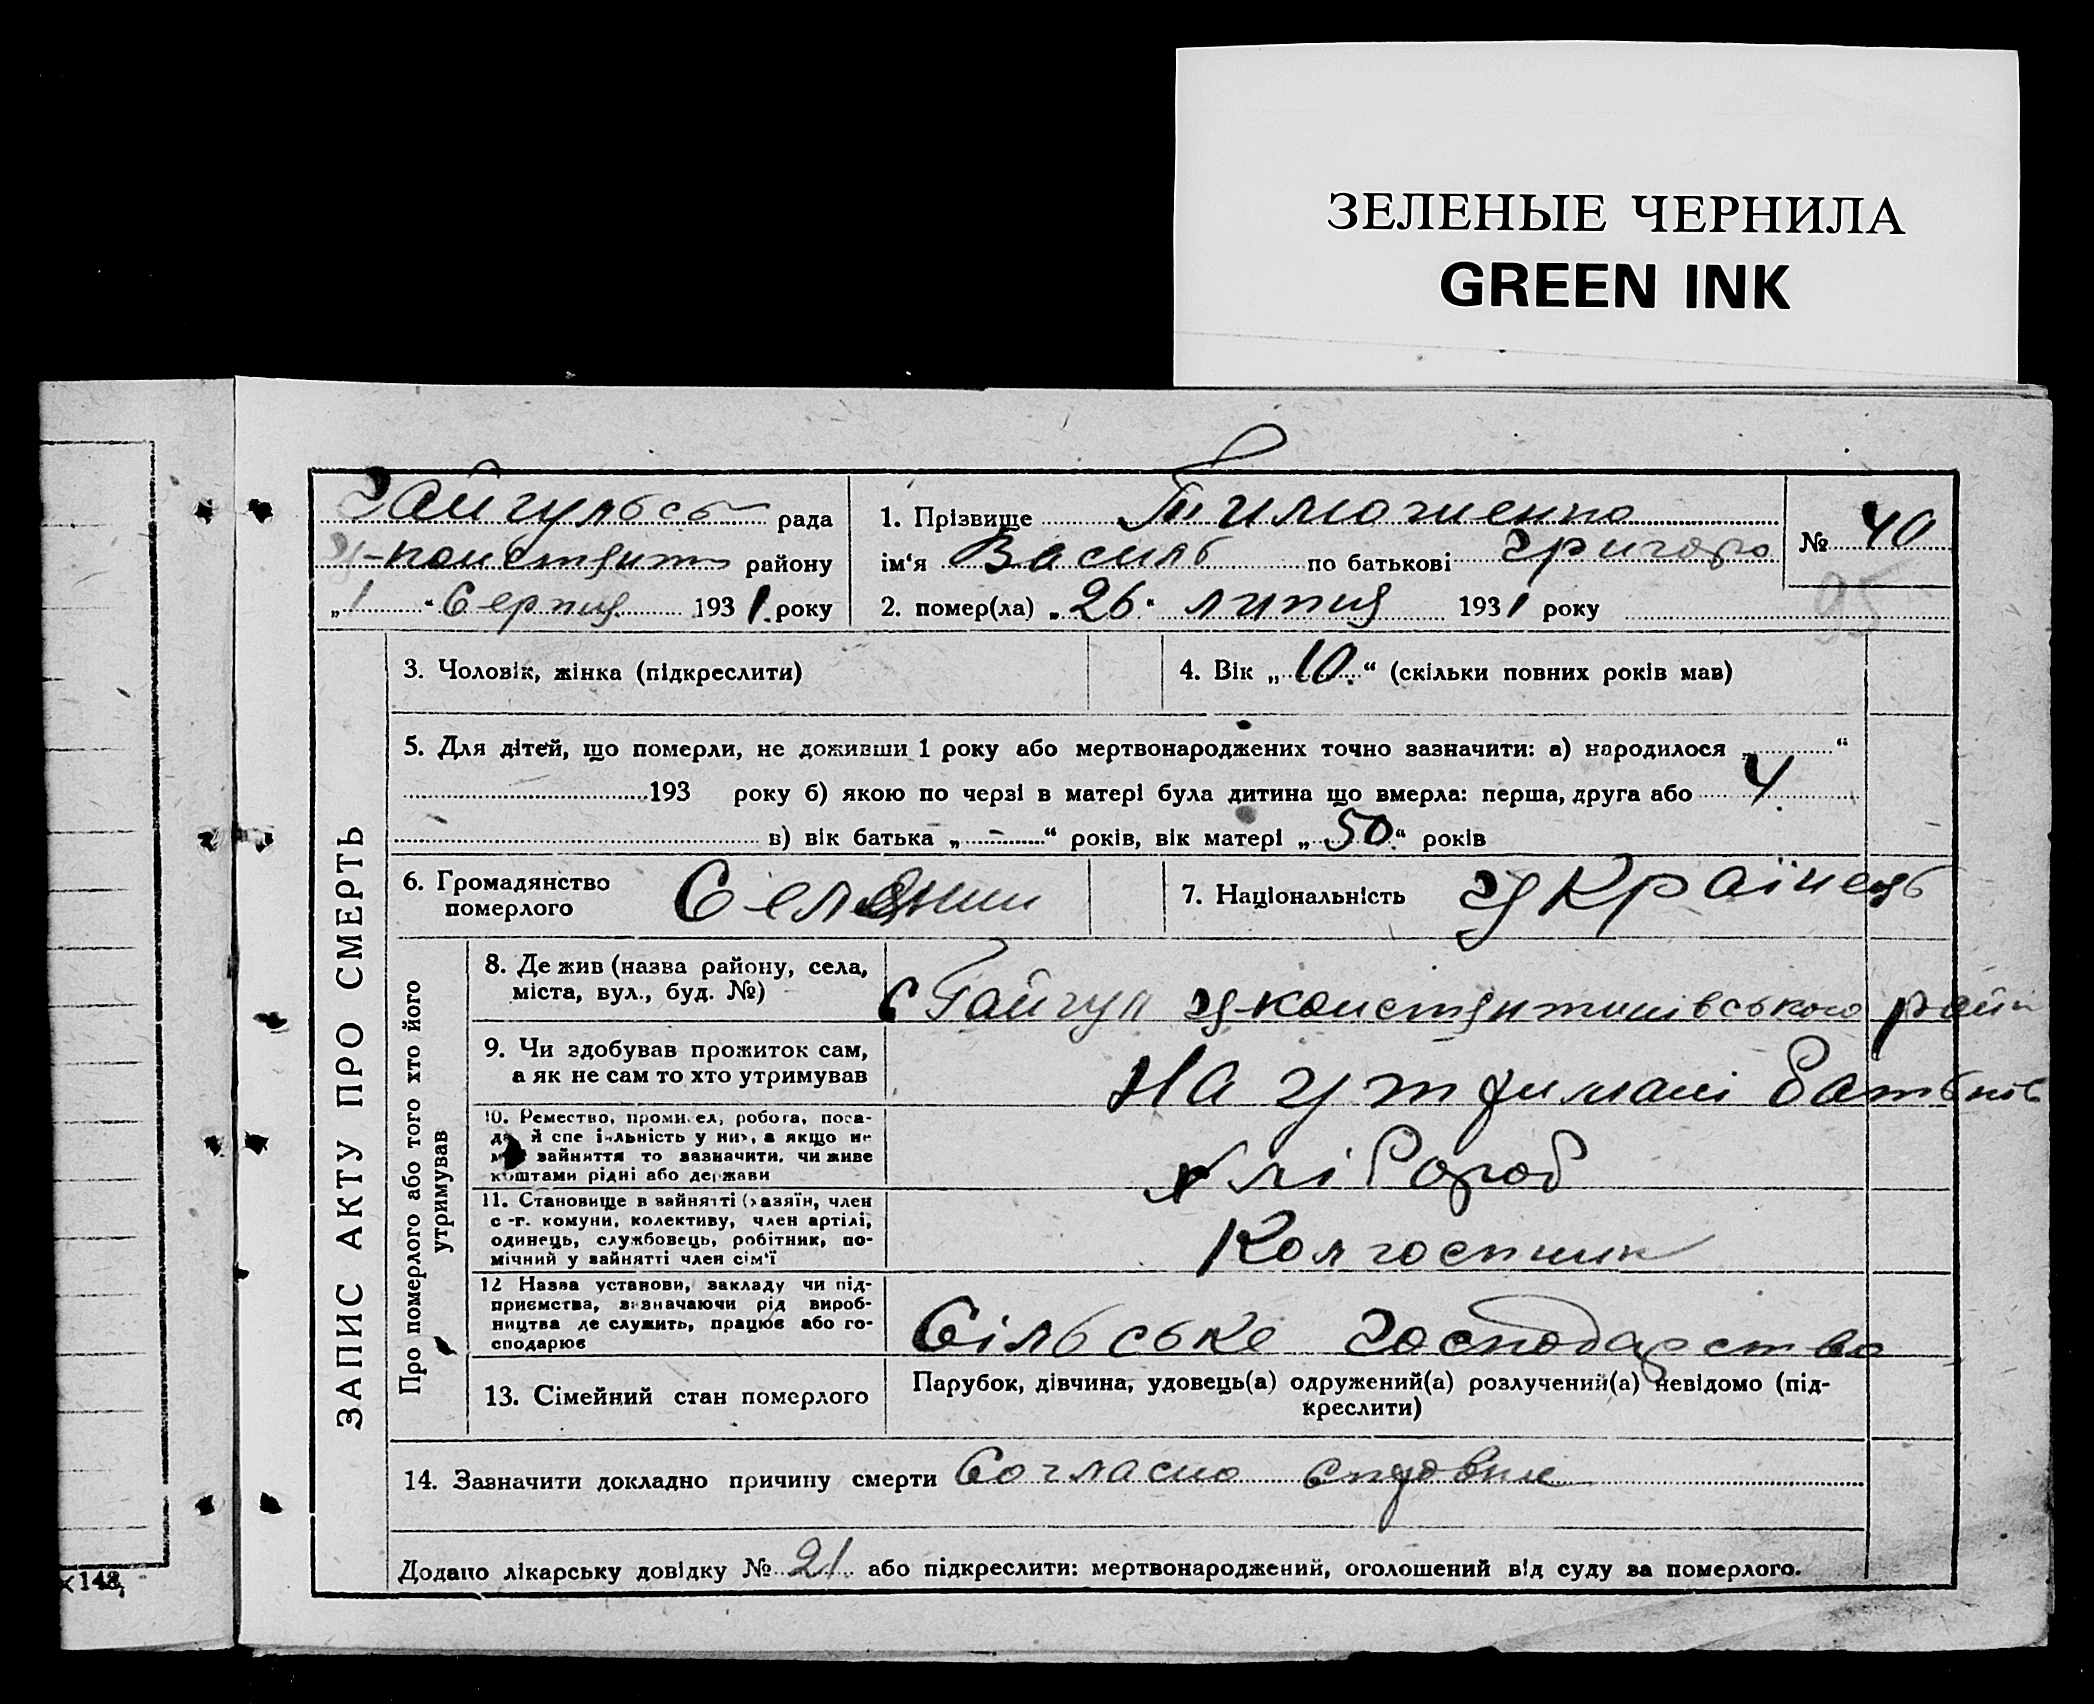 ЗЕЛЕНЫЕ ЧЕРНИЛА
GREEN INK
Гайгульсь рада
У-констянт району
„1“ Серпня 1931 року
1. Прізвище Тимошенко
ім‘я Василь по батькові Григоро
№ 40
95
2. помер(ла) „26“ липня 1931 року
ЗАПИС АКТУ ПРО СМЕРТЬ
3. Чоловік, жінка (підкреслити)
4. Вік „10“ (скільки повних років мав)
5. Для дітей, що померли, не доживши 1 року або мертвонароджених точно зазначити: а) народилося „ “
193 року б) якою по черзі в матері була дитина що вмерла: перша, друга або 4
в) вік батька „-“ років, вік матері „50“ років
6. Громадянство
померлого
Селянин
7. Національність Українець
Про померлого або того хто його
утримував
8. Де жив (назва району, села,
міста, вул., буд. №)
с Гайгул У-констянтинівського райн
9. Чи здобував прожиток сам,
а як не сам то хто утримував
На утримані батьків
10. Ремество, промисел, робота, поса-
да й спеціяльність у них, а якщо не
має зайняття то зазначити, чи живе
коштами рідні або держави
хлібороб
11. Становище в зайнятті (хазяїн, член
с.-г. комуни, колективу, член артілі,
одинець, службовець, робітник, по-
мічний у зайнятті член сім‘ї
Колгоспник
12 Назва установи, закладу чи під-
приємства, визначаючи рід вироб-
ництва де служить, працює або го-
сподарює
Сільське господарство
13. Сімейний стан померлого
Парубок, дівчина, удовець(а) одружений(а) розлучений(а) невідомо (під-
креслити)
14. Зазначити докладно причину смерти Согласно
Додано лікарську довідку № 21 або підкреслити: мертвонароджений, оголошений від суду за померлого.
148